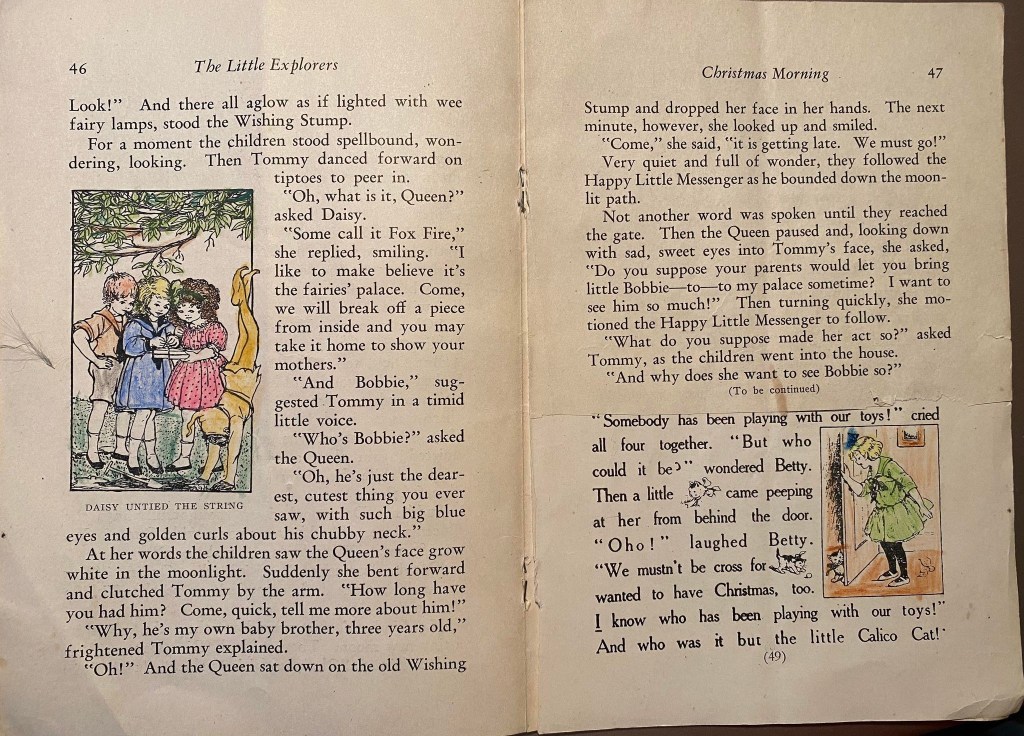 46
The Little Explorers
Look!" And there all aglow as if lighted with wee
fairy lamps, stood the Wishing Stump.
For a moment the children stood spellbound, won-
dering, looking. Then Tommy danced forward on
tiptoes to peer in.
"Oh, what is it, Queen?"
asked Daisy.
"Some call it Fox Fire,"
she replied, smiling. "I
like to make believe it's
the fairies' palace. Come,
we will break off a piece
from inside and you may
take it home to show your
mothers."
"And Bobbie," sug-
gested Tommy in a timid
little voice.
"Who's Bobbie?" asked
the Queen.
"Oh, he's just the dear-
est, cutest thing you ever
saw, with such big blue
DAISY UNTIED THE STRING
eyes and golden curls about his chubby neck."
At her words the children saw the Queen's face grow
white in the moonlight. Suddenly she bent forward
and clutched Tommy by the arm. "How long have
you had him? Come, quick, tell me more about him!"
"Why, he's my own baby brother, three years old,"
frightened Tommy explained.
"Oh!" And the Queen sat down on the old Wishing
Christmas Morning
47
Stump and dropped her face in her hands. The next
minute, however, she looked up and smiled.
"Come," she said, "it is getting late. We must go!"
Very quiet and full of wonder, they followed the
Happy Little Messenger as he bounded down the moon-
lit path.
Not another word was spoken until they reached
the gate. Then the Queen paused and, looking down
with sad, sweet eyes into Tommy's face, she asked,
"Do you suppose your parents would let you bring
little Bobbie—to—to my palace sometime? I want to
see him so much!" Then turning quickly, she mo-
tioned the Happy Little Messenger to follow.
"What do you suppose made her act so?" asked
Tommy, as the children went into the house.
"And why does she want to see Bobbie so?"
(To be continued)
"Somebody has been playing with our toys!" cried
all four together. "But who
could it be?" wondered Betty.
Then a little came peeping
at her from behind the door.
"Oho!" laughed Betty.
"We mustn't be cross for
wanted to have Christmas, too.
I know who has been playing with our toys!"
And who was it but the little Calico Cat!"
(49)